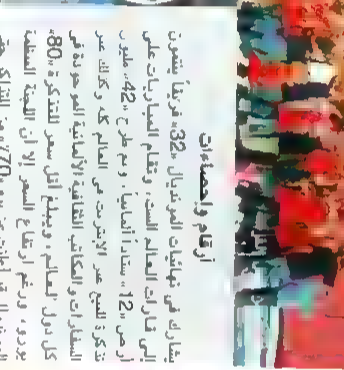 أرقام وإحصاءات
يشارك في نهائيات المونديال «32» فريقاً ينتمون
إلى قارات العالم الست، وتقام المباريات على
أرض «12» ستاداً ألمانياً، وتم طرح «42» مليون
تذكرة للبيع عبر الإنترنت في العالم كله وكذلك عبر
السفارات والمكاتب الثقافية الألمانية الموجودة في
كل دول العالم، ويبلغ أقل سعر للتذكرة «80»
يورو، ورغم ارتفاع السعر إلا أن اللجنة المنظمة